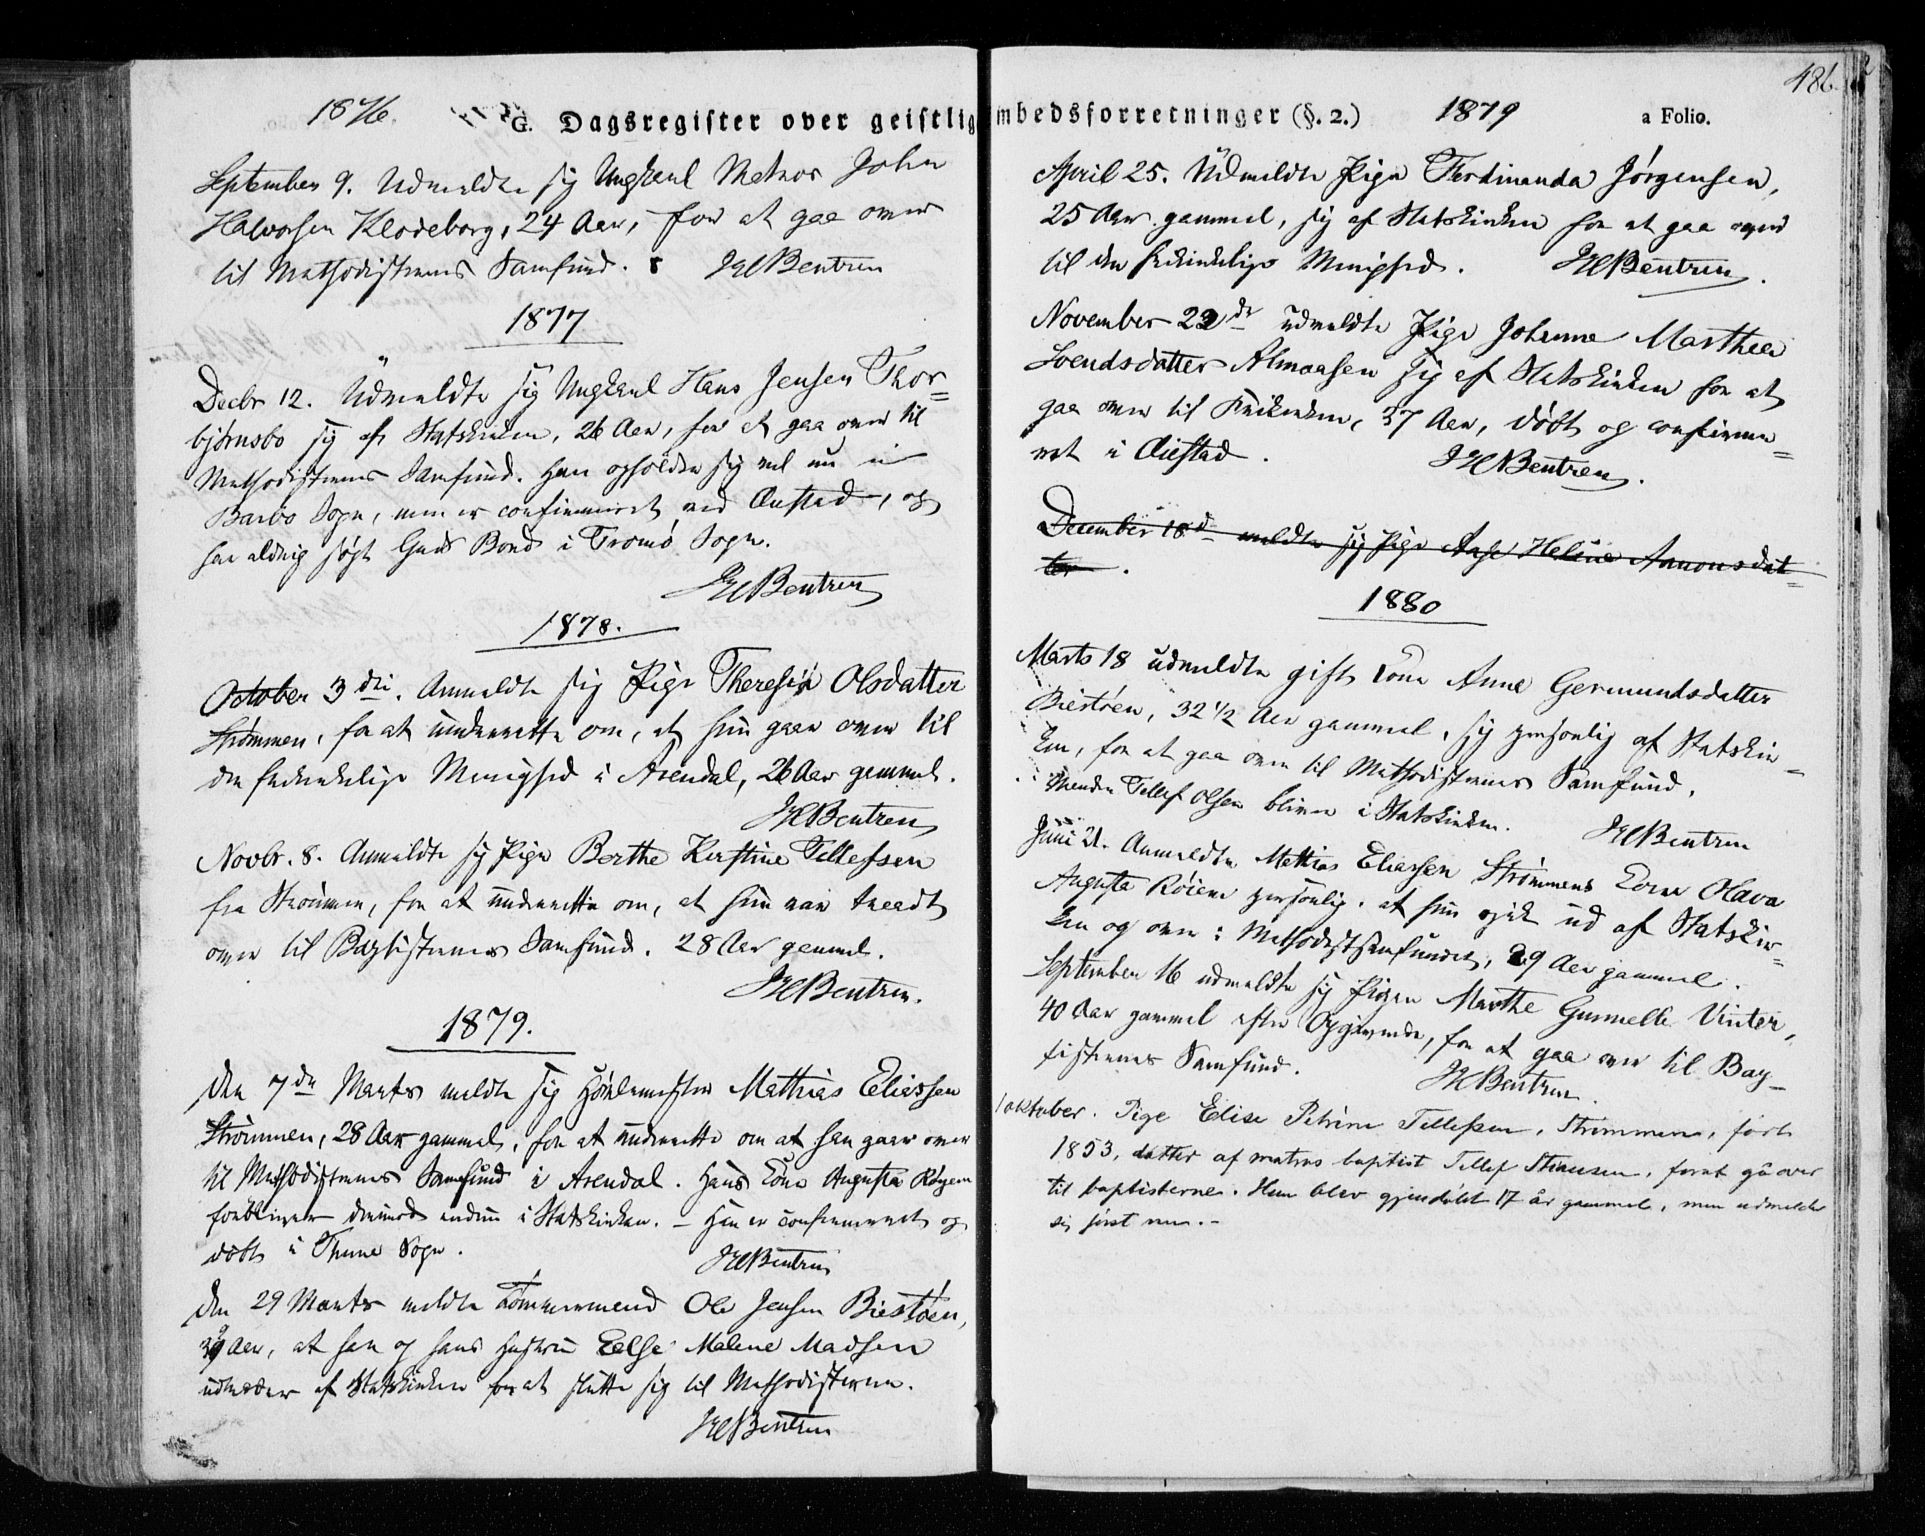 1876.
G. Dagsregister over geistlig
September 9. Udmeldte sig Ungkarl Matros John
Halvorsen Klodeborg, 24 Aar, for at gaa over
til Methodisternes Samfund. JHBentzen
1877
Decbr 12. Udmeldte sig Ungkarl Hans Jensen Thor=
bjørnsbo sig af Statskirken, 26 Aar, for at gaa over til
Methodisternes Samfund. Han opholder sig vel nu i
Barbo Sogn, men er confirmeret ved Øiestad, og
har aldrig søgt Guds Bord i Tromø Sogn.
JHBentzen
1878.
October 3die. Anmeldte sig Pige Theresia Olsdatter
Strømmen, for at underrette om, at hun gaar over til
den frikirkelige Menighed i Arendal, 26 Aar gammel.
JHBentzen
Novbr. 8. Anmeldte sig Pige Berthe Kirstine Tellefsen
fra Strømmen, for at underrette om, at hun var traadt
over til Baptisternes Samfund. 28 Aar gammel.
JHBentzen.
1879.
Den 7de Marts meldte sig Mathias Eliassen
Strømmen, 28 Aar gammel, for at underrette om at han gaar over
til Methodisternes Samfund i Arendal. Hans Kone Augusta Røiem
forbliver derimod endnu i Statskirken. – Han er confirmeret og
døbt i Sogn.
JHBentzen
Den 29 Marts meldte Tømmermand Ole Jensen Biestøen,
39 Aar, at han og hans Hustru Else Malene Madsen
udtræder af Statskirken for at slutte sig til Methodisterne.
JHBentzen
486
mbedsforretninger (§. 2.) 1879 a Folio.
April 25. Udmeldte Pige Ferdinanda Jørgensen,
25 Aar gammel, sig af Statskirken for at gaa over
til den frikirkelige Menighed. JHBentzen.
November 22de udmeldte Pige Johanne Marthea
Svendsdatter Almaasen sig af Statskirken for at
gaa over til Frikirken, 37 Aar, døbt og confirme=
ret i Øiestad. JHBentzen.
December 18d meldte sig Pige Aase Helene Aanonsdat=
ter.
1880
Marts 18 udmeldte gift Kone Anne Germundsdatter
Biestøen, 32 1/2 Aar gammel, sig personlig af Statskir=
ken, for at gaa over til Methodisternes Samfund.
Manden Tellef Olsen bliver i Statskirken. JHBentzen
Juni 21. Anmeldte Mathias Eliassen Strømmens Kone Olava
Augusta Røiem personlig, at hun gik ud af Statskir=
ken og over i Methodistsamfundet, 29 Aar gammel.
September 16 udmeldte sig Pigen Marthe Gunnelle Vinter,
40 Aar gammel efter Opgivende, for at gaa over til Bap=
tisternes Samfund. JHBentzen.
1 oktober. Pige Elise Petrine Tellefsen, Strømmen, født
1853, datter af matros baptist Tellef , forat gå over
til baptisterne. Hun blev gjendøbt 17 år gammel, men udmelder
sig først nu. –